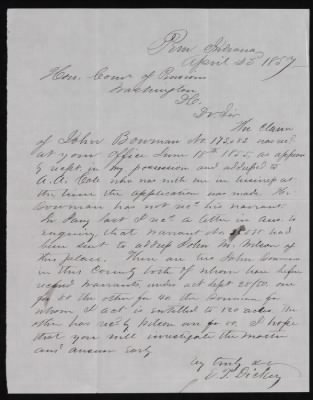 Peru Indiana
April 23 1857
Hon. Comr of Pensions
Washington
D.C.
Dr Sir
The Claim
of John Bowman No. 172082 was recd
at your office June 18th 1855, as appears
by rect. in my possession and addressed to
A. B. Cole who was with me in business at
the time the application was made Mr.
Bowman has not recd his warrant.
In Jany last I recd a letter in Ans. to
enquiry, that warrant No. had
been sent to address John M. Wilson of
this place. There are two John Bowmans
in this County both of whom have before
received warrants, under act Sept 28/50. one
for 80 the other for 40 the Bowman for
whom I act is entitled to 120 acres. The
other has recd by Wilson one for 80. I hope
that you will investigate the matter
and answer early
Dickey